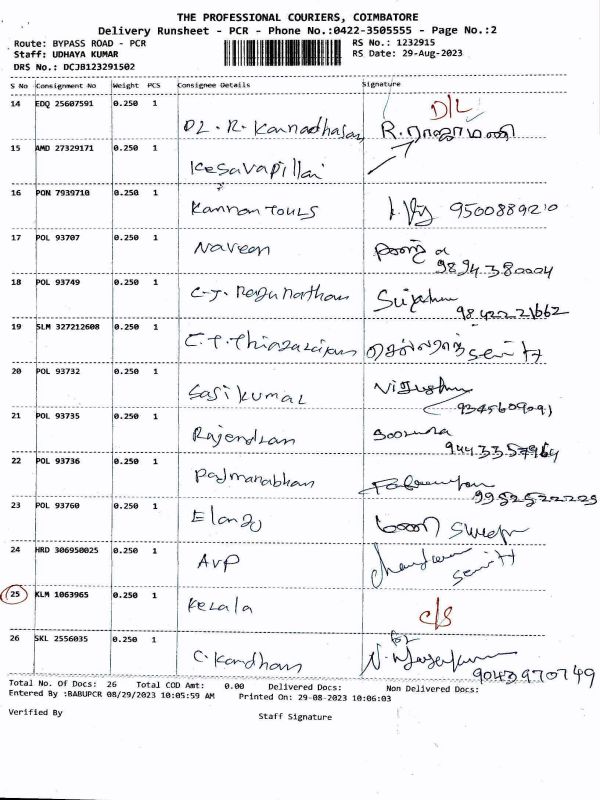 THE PROFESSIONAL COURIERS, COIMBATORE
Delivery Runsheet - PCR - Phone No.:0422-3505555 - Page No.:2
Route: BYPASS ROAD - PCR RS No.: 1232915
Staff: UDHAYA KUMAR RS Date: 29-Aug-2023
DRS No.: DCJB123291502
S No Consignment No Weight PCS Consignee Details Signature
14 EDQ 25607591 0.250 1 D/L
DL. R. Kannadhasan R. ராஜாமணி
15 AMD 27329171 0.250 1
Kesavapillai
16 PON 7939710 0.250 1
Kannan Tours 9500889210
17 POL 93707 0.250 1
Naveen
9894380004
18 POL 93749 0.250 1
C.J. Regunathan
9842221662
19 SLM 327212608 0.250 1
C.T. Thiagarajan
20 POL 93732 0.250 1
Sasikumar
9345609091
21 POL 93735 0.250 1
Rajendran
9443357964
22 POL 93736 0.250 1
Padmanabhan
9952522229
23 POL 93760 0.250 1
Elango
24 HRD 306950025 0.250 1
AVP
25 KLM 1063965 0.250 1
Kerala C/S
26 SKL 2556035 0.250 1 for
C. Kandhan
9043970749
Total No. Of Docs: 26 Total COD Amt: 0.00 Delivered Docs: Non Delivered Docs:
Entered By :BABUPCR 08/29/2023 10:05:59 AM Printed On: 29-08-2023 10:06:03
Verified By Staff Signature